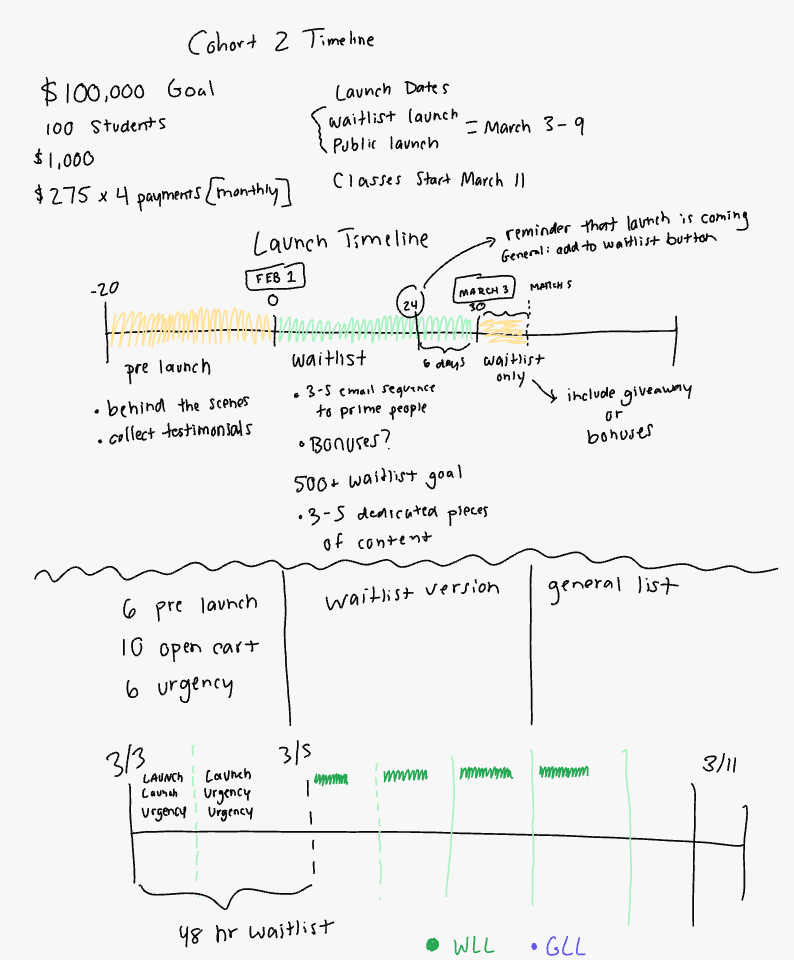 Cohort 2 Timeline
$100,000 Goal
100 Students
$1,000
$275 x 4 payments [monthly]
Launch Dates
{ waitlist launch
Public launch
= March 3-9
Classes Start March 11
Launch Timeline
reminder that launch is coming
General: add to waitlist button
-20
FEB 1
0
24
MARCH 3
30
MARCH 5
pre launch
• behind the scenes
• collect testimonials
waitlist
• 3-5 email sequence
to prime people
• Bonuses?
500+ waitlist goal
• 3-5 dedicated pieces
of content
6 days
waitlist
only
include giveaway
or
bonuses
6 pre launch
10 open cart
6 urgency
waitlist version
general list
3/3
LAUNCH
Launch
Urgency
Launch
Urgency
Urgency
3/5
3/11
48 hr waitlist
• WLL
• GLL